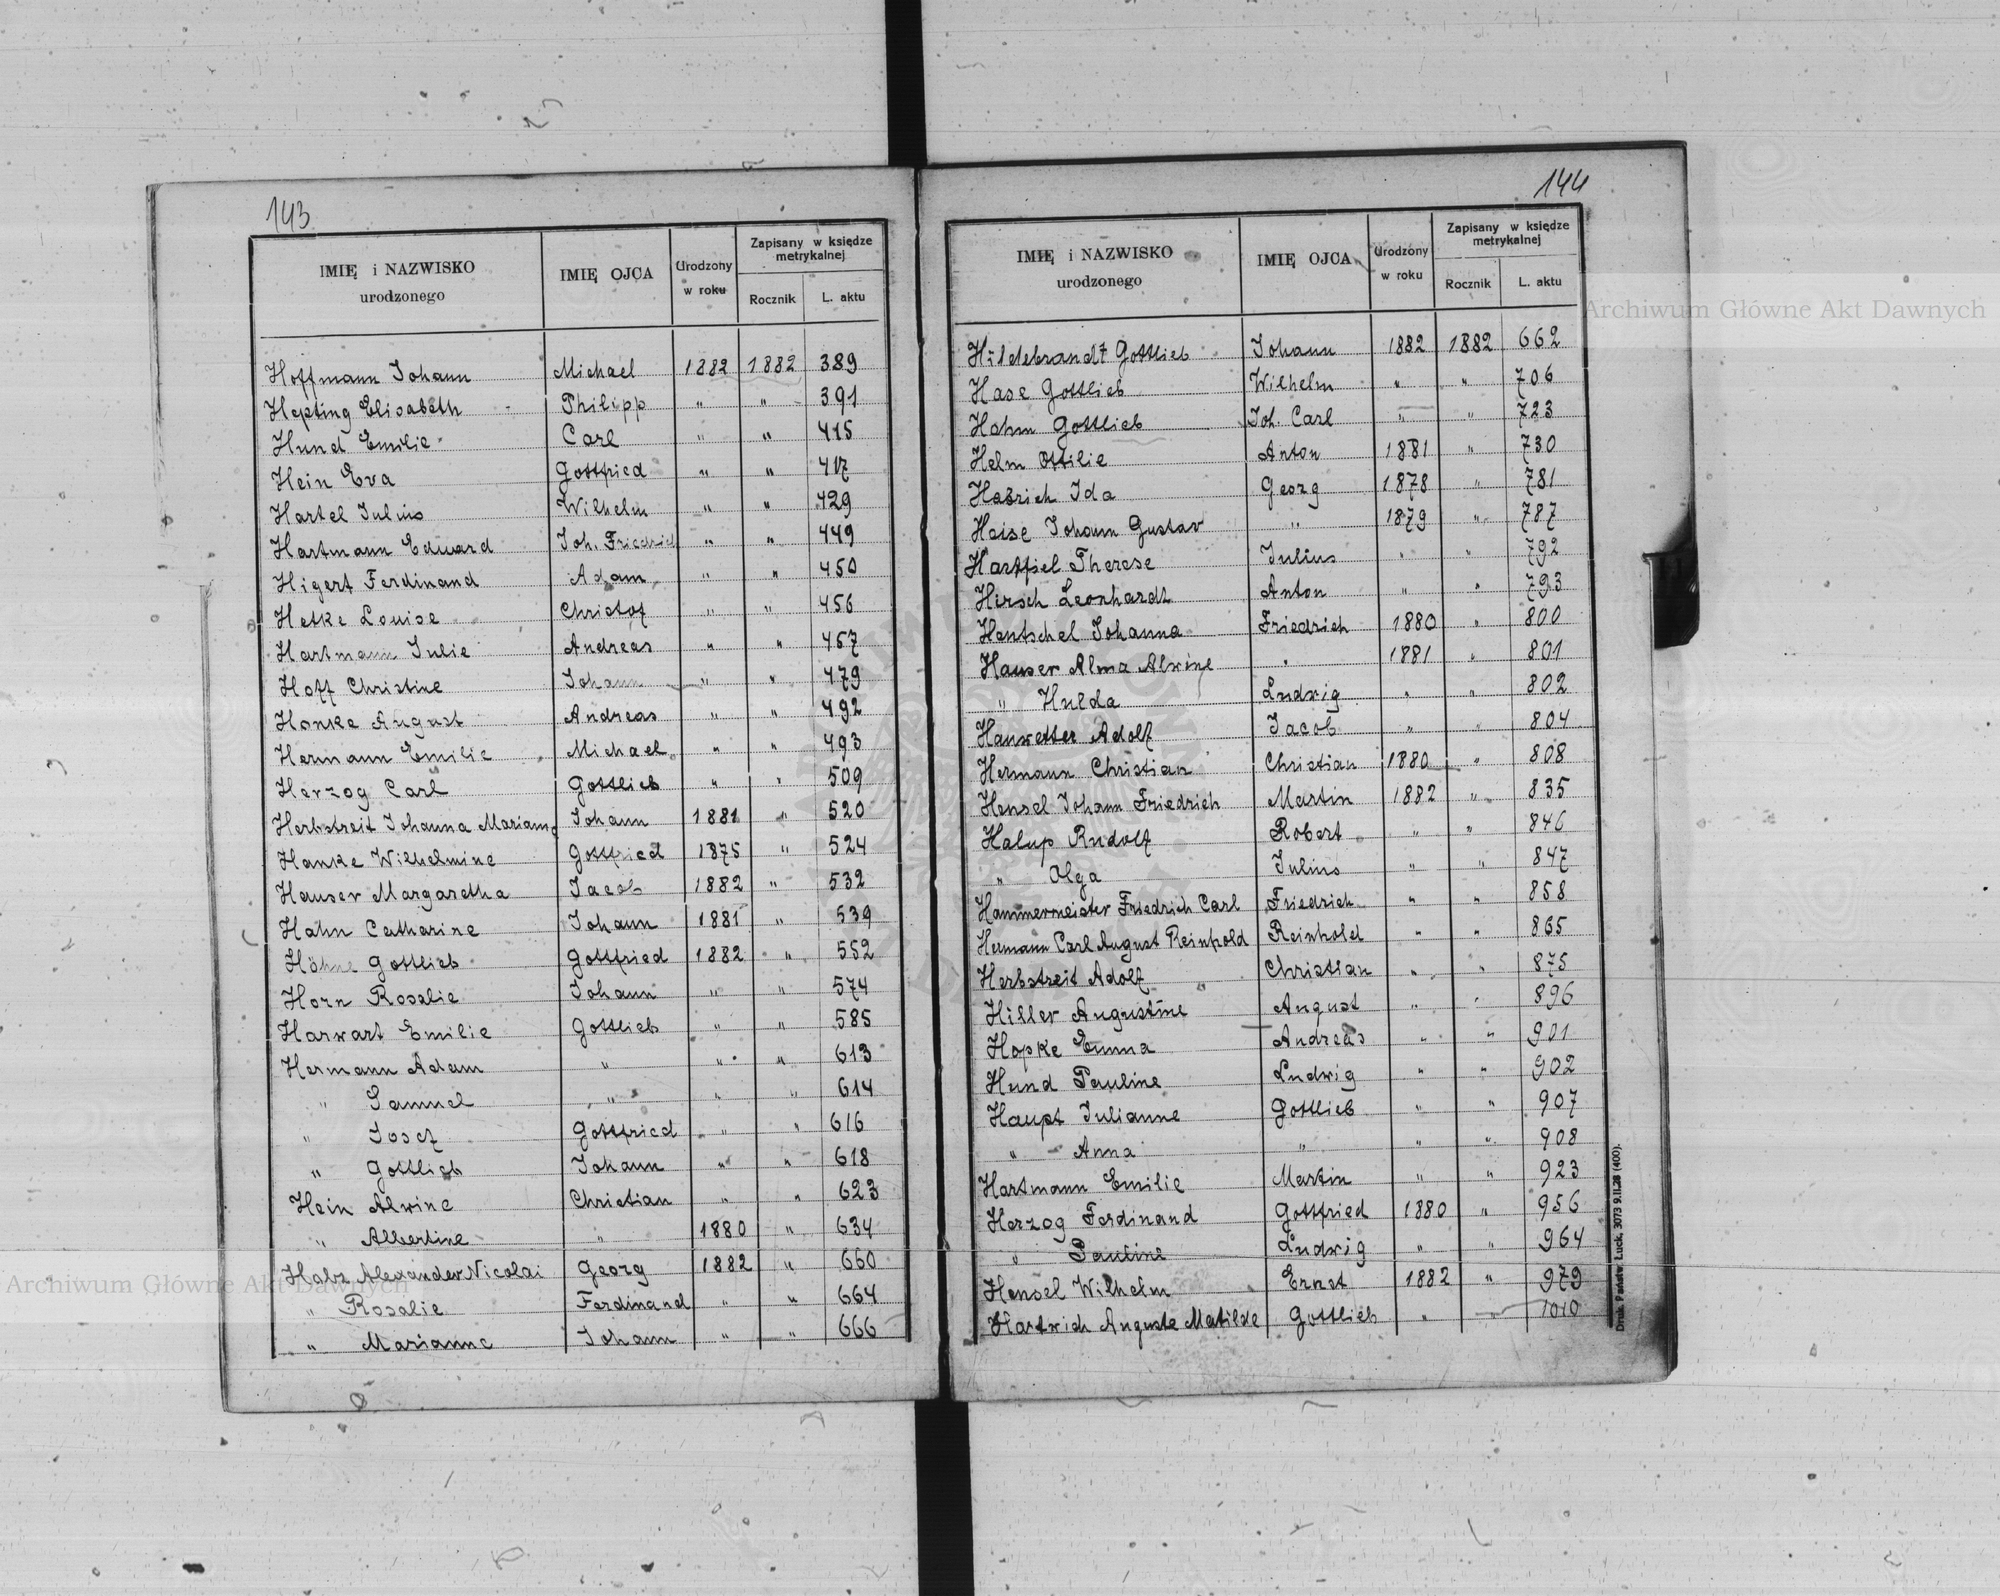 143
IMIĘ i NAZWISKO urodzonego | IMIĘ OJCA | Urodzony w roku | Zapisany w księdze metrykalnej | Rocznik | L. aktu
Hoffmann Johann | Michael | 1882 | 1882 | 389
Hepting Elisabeth | Philipp | " | " | 391
Hund Emilie | Carl | " | " | 415
Hein Eva | Gottfried | " | " | 417
Hartel Julius | Wilhelm | " | " | 429
Hartmann Eduard | Joh. Friedrich | " | " | 449
Higert Ferdinand | Adam | " | " | 450
Hetke Louise | Christof | " | " | 456
Hartmann Julie | Andreas | " | " | 457
Hoff Christine | Johann | " | " | 479
Honke August | Andreas | " | " | 492
Hermann Emilie | Michael | " | " | 493
Herzog Carl | Gottlieb | " | " | 509
Herbstreit Johanna Mariann | Johann | 1881 | " | 520
Hanke Wilhelmine | Gottfried | 1875 | " | 524
Hauser Margaretha | Jacob | 1882 | " | 532
Hahn Catharine | Johann | 1881 | " | 539
Höhne Gottlieb | Gottfried | 1882 | " | 552
Horn Rosalie | Johann | " | " | 574
Harwart Emilie | Gottlieb | " | " | 585
Hermann Adam | " | " | " | 613
" Samuel | " | " | " | 614
" Josef | Gottfried | " | " | 616
" Gottlieb | Johann | " | " | 618
Hein Alwine | Christian | " | " | 623
" Albertine | " | 1880 | " | 634
Habz Alexander Nicolai | Georg | 1882 | " | 660
" Rosalie | Ferdinand | " | " | 664
" Marianne | Johann | " | " | 666
144
IMIĘ i NAZWISKO urodzonego | IMIĘ OJCA | Urodzony w roku | Zapisany w księdze metrykalnej | Rocznik | L. aktu
Hildebrandt Gottlieb | Johann | 1882 | 1882 | 662
Hase Gottlieb | Wilhelm | " | " | 706
Hahm Gottlieb | Joh. Carl | " | " | 723
Helm Ottilie | Anton | 1881 | " | 730
Ida | Georg | 1878 | " | 781
Heise Johann Gustav | " | 1879 | " | 787
Hartfiel Therese | Julius | " | " | 792
Hirsch Leonhardt | Anton | " | " | 793
Hentschel Johanna | Friedrich | 1880 | " | 800
Hauser Alma Alwine | " | 1881 | " | 801
" Hulda | Ludwig | " | " | 802
Hauwetter Adolf | Jacob | " | " | 804
Hermann Christian | Christian | 1880 | " | 808
Hensel Johann Friedrich | Martin | 1882 | " | 835
Halup Rudolf | Robert | " | " | 846
" Olga | Julius | " | " | 847
Hammermeister Friedrich Carl | Friedrich | " | " | 858
Hermann Carl August Reinhold | Reinhold | " | " | 865
Herbstreit Adolf | Christian | " | " | 875
Hiller Augustine | August | " | " | 896
Hopke Emma | Andreas | " | " | 901
Hund Pauline | Ludwig | " | " | 902
Haupt Julianne | Gottlieb | " | " | 907
" Anna | " | " | " | 908
Hartmann Emilie | Martin | " | " | 923
Herzog Ferdinand | Gottfried | 1880 | " | 956
" Pauline | Ludwig | " | " | 964
Hensel Wilhelm | Ernst | 1882 | " | 979
Hartwich Auguste Matilde | Gottlieb | " | " | 1010
Druk. Państw. Luck, 3073 9.II.28 (400).
Archiwum Główne Akt Dawnych
Archiwum Główne Akt Dawnych